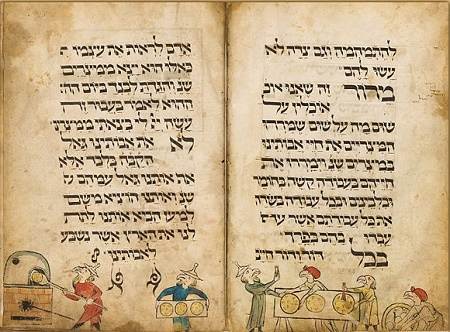 להתמהמה וגם צדה לא
עשו להם
מרור זה שאנו
אוכלין על
שום מה על שום שמררו
המצריים את חיי אבותינו
במצרים שנ וימררו את
חייהם בעבודה קשה בחומר
ובלבנים ובכל עבודה בשדה
את כל עבודתם אשר
עבדו בהם בפרך
בכל דור ודור חייב
אדם לראות את עצמו
כאילו הוא יצא ממצרים
שנ והגדת לבנך ביום
ההוא לאמר בעבור זה
עשה לי בצאתי ממצרים
לא את אבותינו גאל
הקבה בלבד אלא
אותנו גאל עמהם
שנ ואותנו הוציא משם
למען הביא אותנו לתת
לנו את הארץ אשר נשבע
לאבותינו